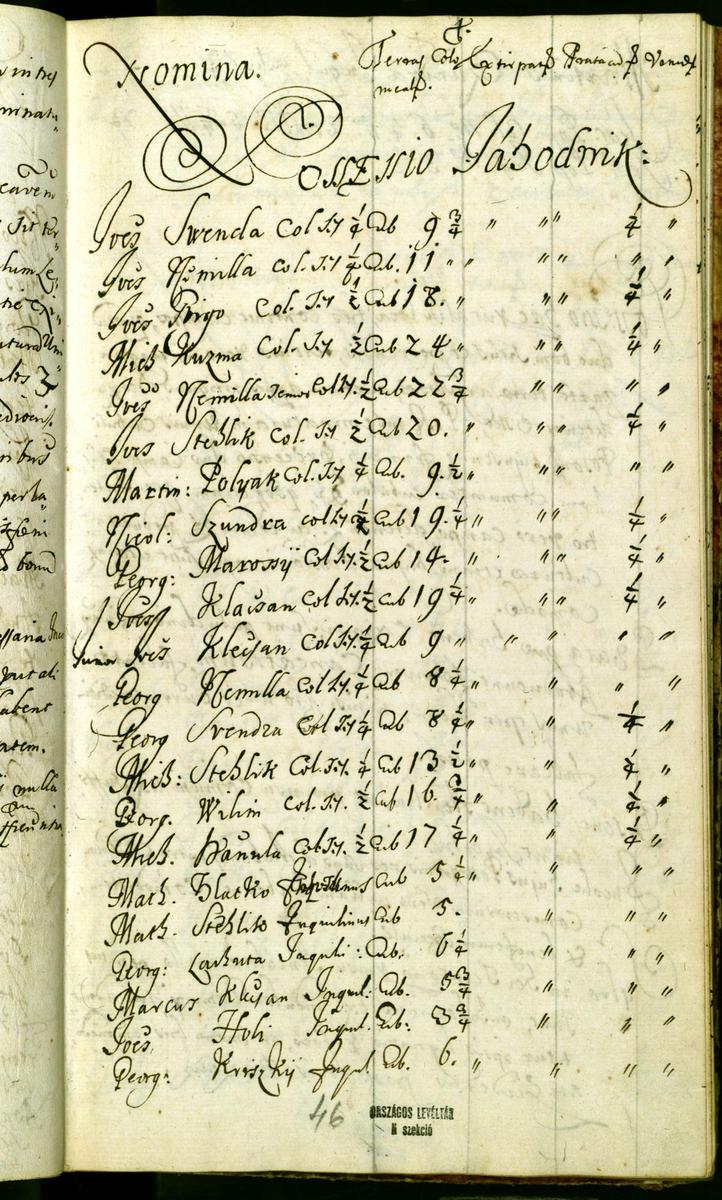 Nomina. Terras Colo Extirpat Pratacu Venea
mcal.
Possessio Jáhodnik:
Joes Swenda Col. Ty ¼ Cub 9 ¾ " " " ¼ "
Joes Nemilla Col. Ty ¼ Cub. 11 " " " " " "
Joes Prigo Col. Ty ½ Cub 18. " " " ¼ "
Mich Kuzma Col. Ty ½ Cub 24 " " " ¼ "
Joes Nemilla Col Ty. ½ Cub 22 ¾ " " " "
Joes Stehlik Col. Ty ½ Cub 20. " " " ¼ "
Martin: Polyak Col. Ty ¼ Cub. 9. ½ " " " " "
Nicol: Szundra Col Ty ½ Cub 19. ¼ " " " ¼ "
Georg: Marossÿ Col Ty. ½ Cub 14. " " " ¼ "
Joes Klacsan Col Ty. ½ Cub 19 ¼ " " " ¼ "
Joes Klecsan Col Ty. ¼ Cub 9 " " " " "
Georg Nemilla Col Ty. ¼ Cub 8 ¼ " " " "
Georg Svendra Col Ty ¼ Cub 8 ¼ " " ¼ "
Mich: Stehlik Col. Ty. ¼ Cub 13 ½ " " ¼ "
Georg. Wilim Col. Ty. ½ Cub 16. ¾ " " ¼ "
Mich. Hanula Col Ty. ½ Cub 17 ¼ " " ¼ "
Math. Blatko Cub 5 ¼ " " " "
Math. Stehlik Inquilinus Cub 5. " " "
Georg: Lachuta Inquli: Cub. 6 ¼ " " "
Marcus Klecsan Inqul: Cub. 5 ¾ " " "
Joes Holi Inqul. Cub: 3 ¾ " " "
Georg: Kriszkÿ Inqul Cub. 6. " " " "
46
ORSZÁGOS LEVÉLTÁR
N szekció